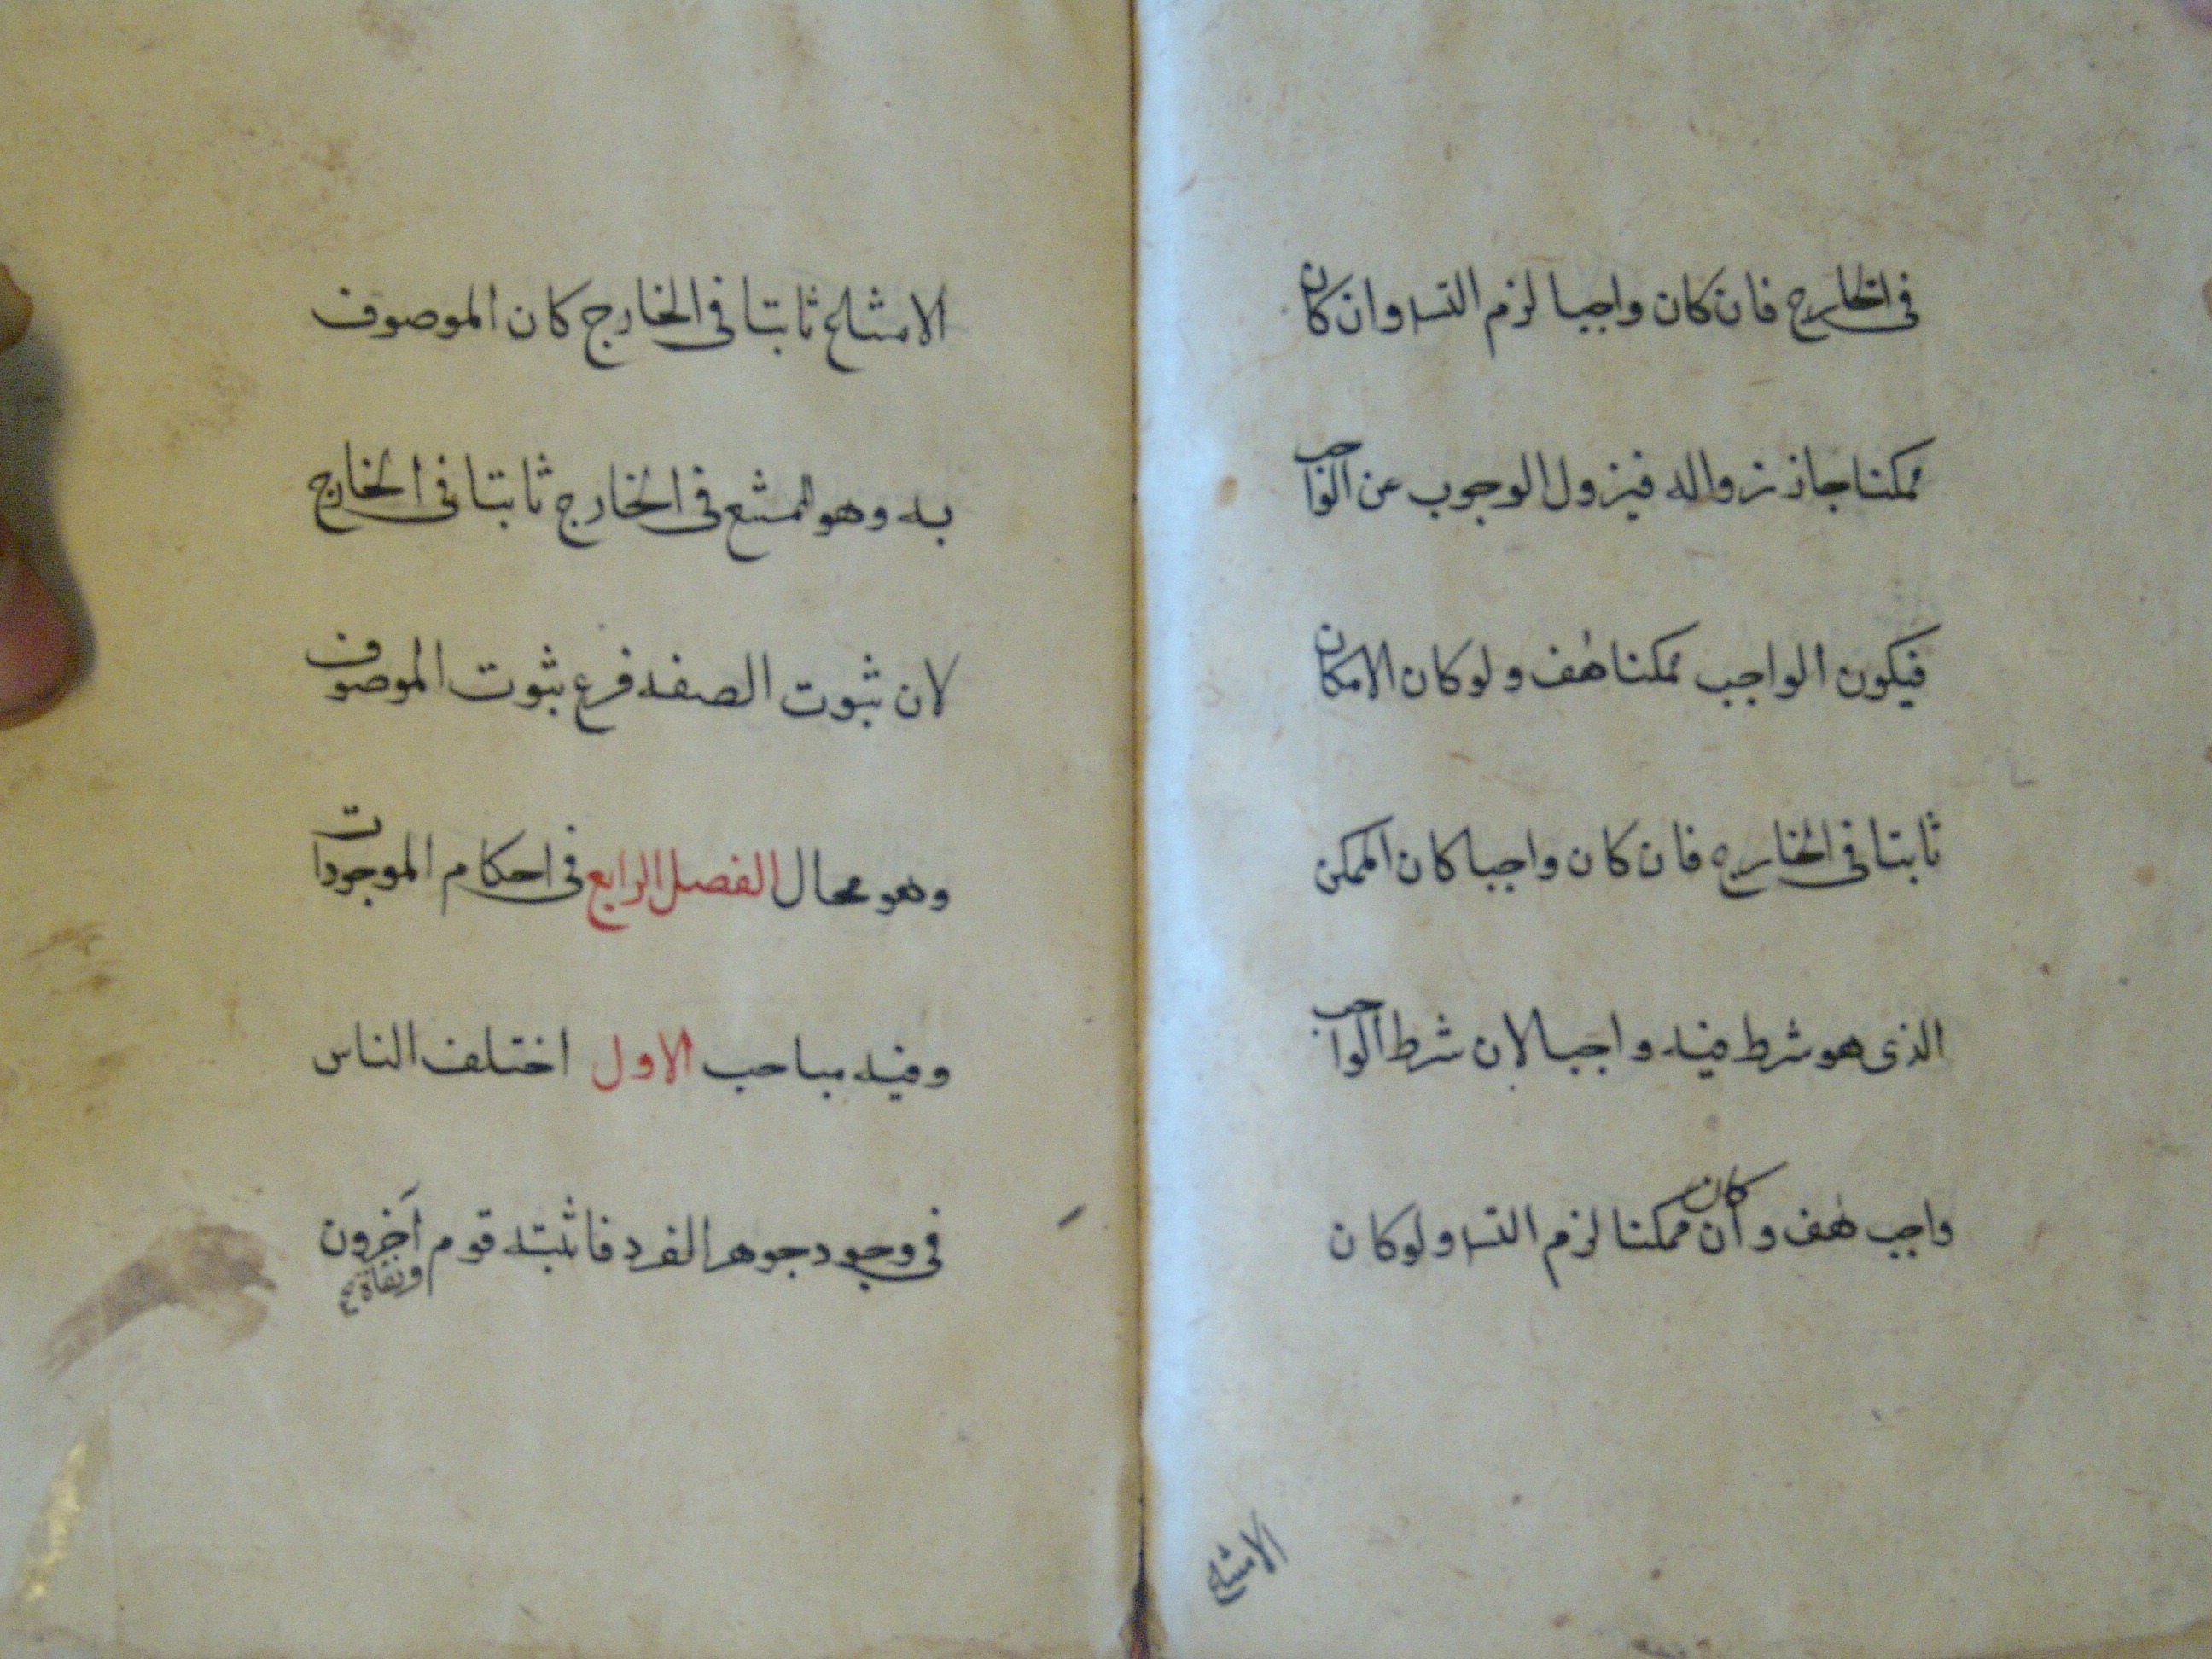 فى الخارج فان كان واجبا لزم التسـ وان كان
ممكنا جاز زواله فيزول الوجوب عن الواجب
فيكون الواجب ممكنا هف ولو كان الامكان
ثابتا فى الخارج فان كان واجبا كان الممكن
الذى هو شرط فيه واجبا لان شرط الواجب
واجب هف وان كان ممكنا لزم التسـ ولو كان
الامتناع
الامتناع ثابتا فى الخارج كان الموصوف
به وهو الممتنع فى الخارج ثابتا فى الخارج
لان ثبوت الصفه فرع ثبوت الموصوف
وهو محال الفصل الرابع فى احكام الموجودات
وفيه مباحب الاول اختلف الناس
فى وجود جوهر الفرد فاثبته قوم آخرون
ونفاة